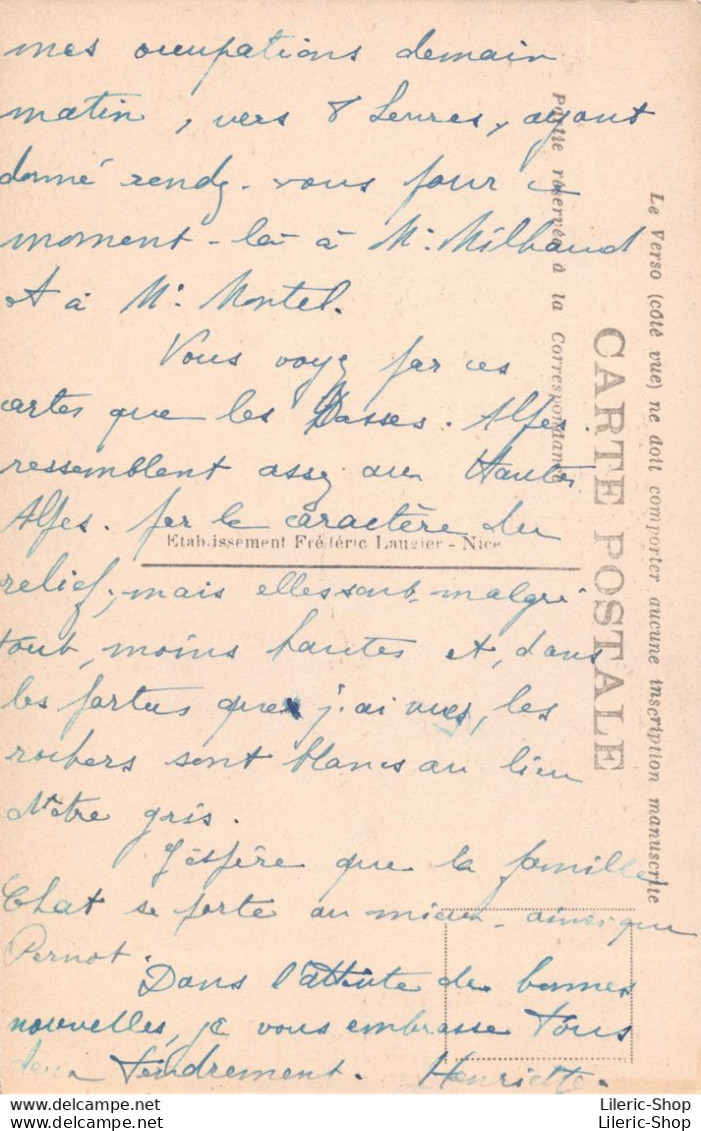 mes occupations demain
matin, vers 8 heures, ayant
donné rendz-vous pour ce
moment-là à Mr Milhaud
et à Mr Montel.
Vous voyz par ces
cartes que les Basses. Alpes.
ressemblent assz aux Hautes
Alpes. par le caractère du
relief, mais elles sont malgré
tout, moins hautes et, dans
les parties que j'ai vues, les
rochers sont blancs au lieu
d'être gris.
J'espère que la famille
Chat se porte au mieux ainsi que
Pernot.
Dans l'attente de bonnes
nouvelles, je vous embrasse tous
deux tendrement. Henriette.
Etablissement Frédéric Laugier - Nice
Partie réservée à la Correspondance
CARTE POSTALE
Le Verso (côté vue) ne doit comporter aucune inscription manuscrite
Lileric-Shop
Lileric-Shop